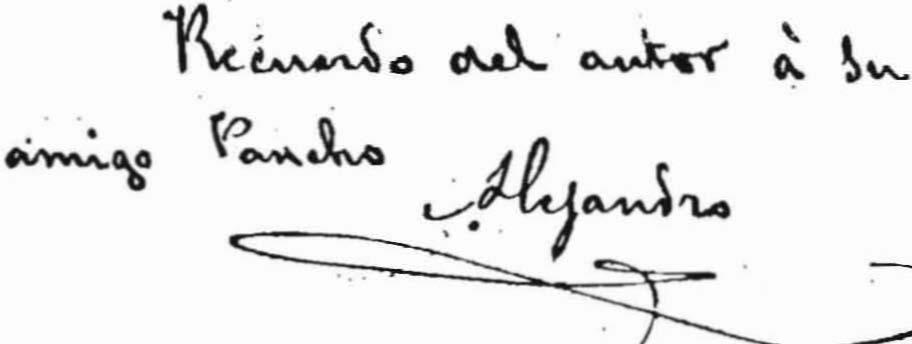 Recuerdo del autor à su
amigo Pancho
Alejandro